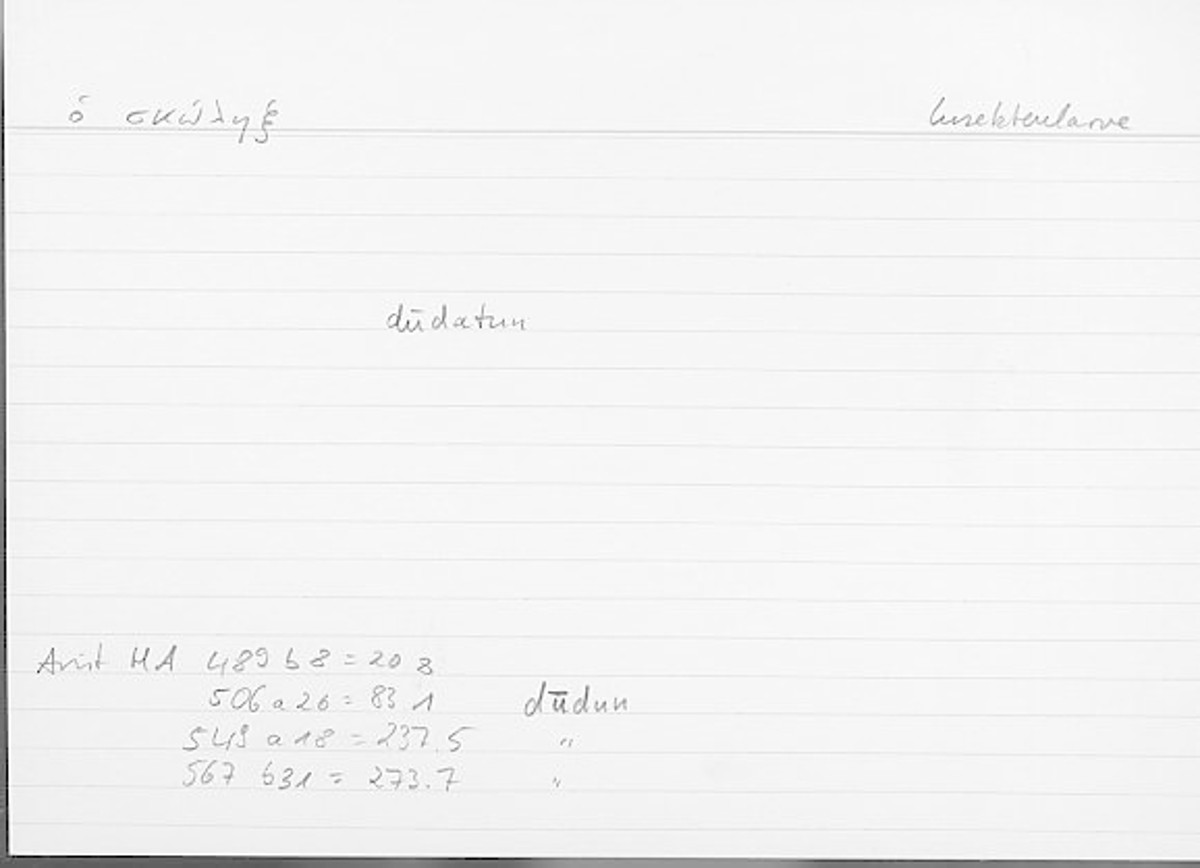 ὁ σκώληξ Insektenlarve
dūdatun
Arist HA 489 b 8 = 20 8
506 a 26 = 83 1 dūdun
549 a 18 = 237.5 "
567 b31 = 273.7 "